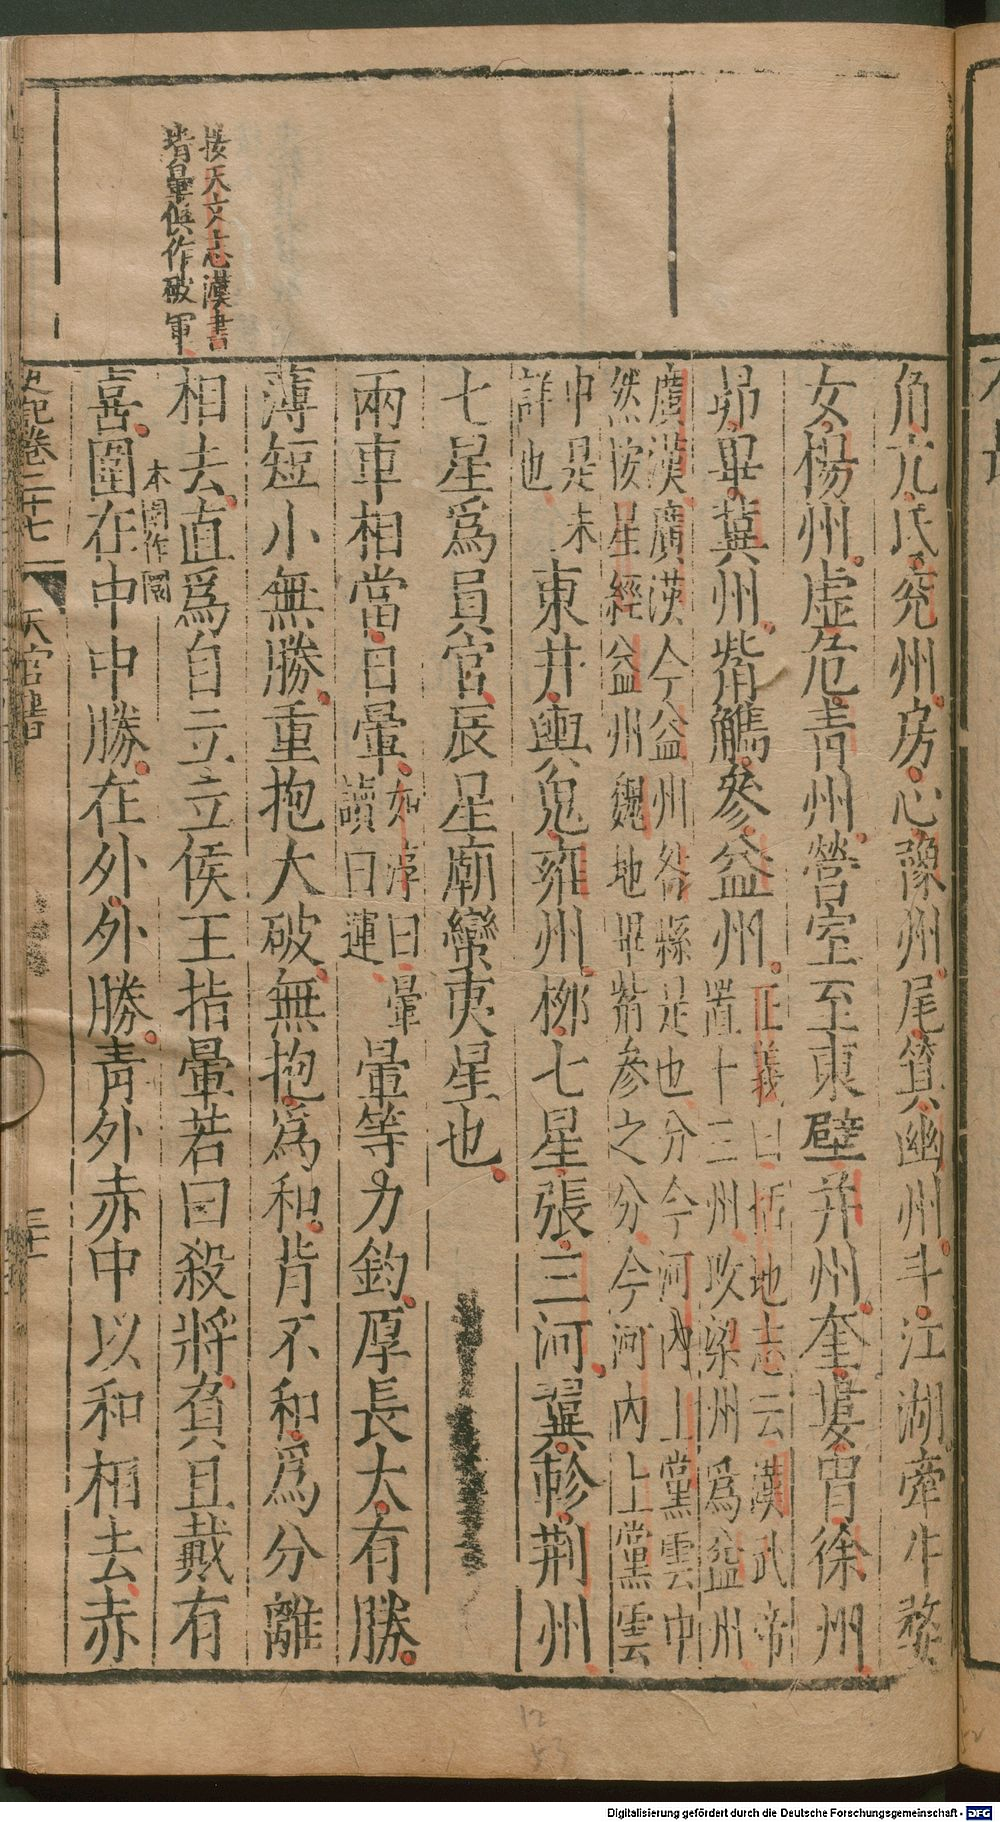 按天文志漢書
背暈俱作破軍
角亢氐兖州房心豫州尾箕幽州斗江湖牽牛婺
女楊州虛危青州營室至東壁并州奎婁胃徐州
昴畢冀州觜觿參益州
正義曰括地志云漢武帝
置十三州攺梁州爲益州
廣漢廣漢今益州咎縣是也分今河內上黨雲中
然按星經益州魏地畢觜參之分今河內上黨雲
中是未
詳也
東井輿鬼雍州柳七星張三河翼軫荆州
七星爲員官辰星廟蠻夷星也
兩軍相當日暈
如淳曰暈
讀曰運
暈等力鈞厚長大有勝
薄短小無勝重抱大破無抱爲和背不和爲分離
相去直爲自立立侯王指暈若曰殺將負且戴有
本圍作圜
喜圍在中中勝在外外勝青外赤中以和相去赤
史記卷二十七 天官書 三十一
Digitalisierung gefördert durch die Deutsche Forschungsgemeinschaft - DFG